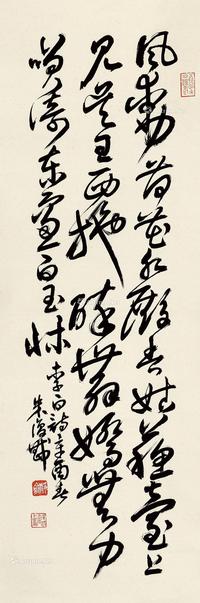 風動荷花水殿香姑蘇臺上
見吳王西施醉舞嬌無力
笑倚東窗白玉牀
李白詩辛酉春
朱復戡